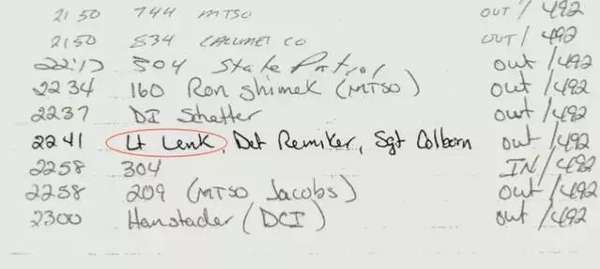 2150 744 MTSO OUT / 492
2150 534 CALUMET CO OUT / 492
22:17 504 State Patrol out / 492
2234 160 Ron Shimek (MTSO) out / 492
2237 DI Schetter out / 492
2241 Lt Lenk, Det Remiker, Sgt Colborn out / 492
2258 304 IN / 492
2258 209 (MTSO Jacobs) out / 492
2300 Hanstader (DCI) out / 492